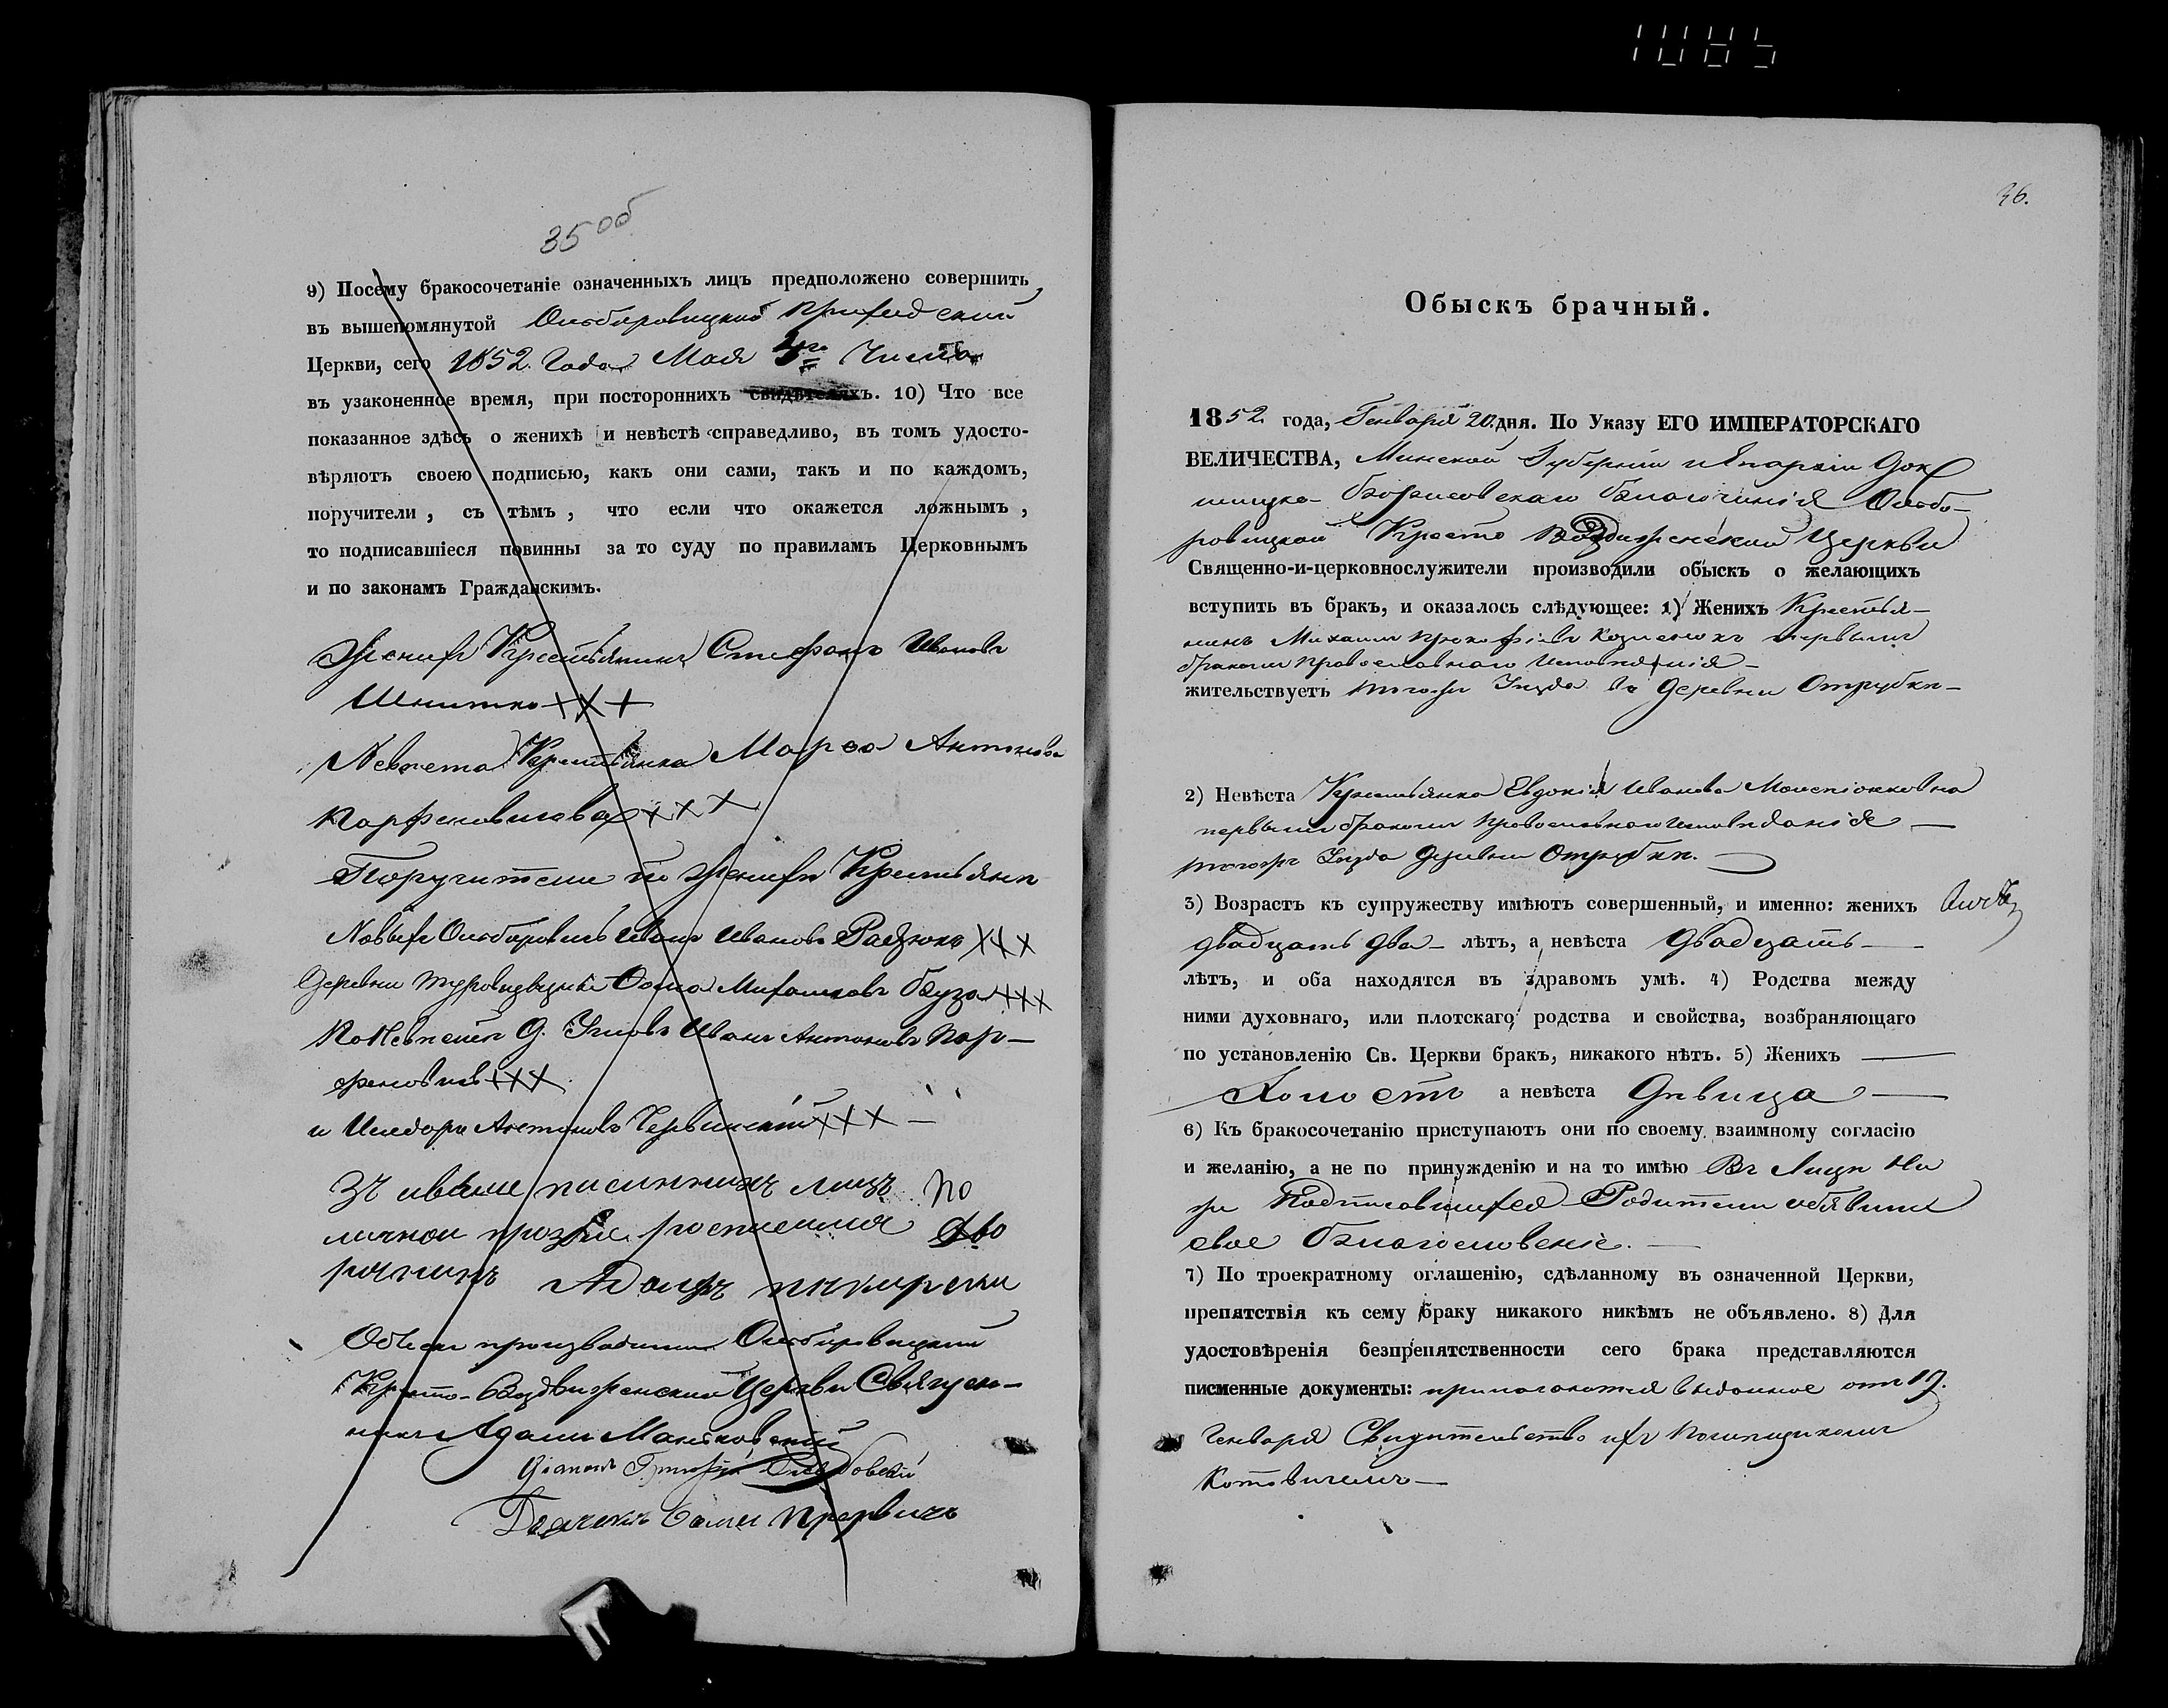 35об
9) Посему бракосочетаніе означенныхъ лицъ предположено совершить
въ вышепомянутой Ольборовицкой приходской
Церкви, сего 1852 Года Мая 4го Числа
въ узаконенное время, при постороннихъ свидѣтеляхъ. 10) Что все
показанное здѣсь о женихѣ и невѣстѣ справедливо, въ томъ удосто-
вѣряютъ своею подписью, какъ они сами, такъ и по каждомъ,
поручители, съ тѣмъ, что если что окажется ложнымъ,
то подписавшіеся повинны за то суду по правиламъ Церковнымъ
и по законамъ Гражданскимъ.
Женихъ Крестьянинъ Стефанъ Ивановъ
Шнитко +++
Невѣста Крестьянка Марѳа Антонова
Парфеновичова +++
Поручители по женихѣ Крестьяне
Новыхъ Ольборовичь Иванъ Ивановъ Радзюкъ +++
Деревни Ѳома Михайловъ +++
По Невѣстѣ Д. Иванъ Антоновъ Пар-
феновичъ +++
и Исидоръ Антоновъ Червинскій +++
лицъ по
личной прозбе росписался дво
рянинъ Адамъ
Обыскъ производили Ольборовицкой
Кресто-Воздвиженской Церкви Священ-
никъ Адамъ Маньковскій
Діаконъ Григорій
Дьячекъ Прорвичъ
36.
Обыскъ брачный.
1852 года, Генваря 20 дня. По Указу ЕГО ИМПЕРАТОРСКАГО
ВЕЛИЧЕСТВА, Минской Губерніи и Епархіи Док
шицко-Борисовскаго благочинія Ольбо-
ровицкой Кресто Воздвиженской Церкви
Священно-и-церковнослужители производили обыскъ о желающихъ
вступить въ бракъ, и оказалось слѣдующее: 1) Женихъ Крестья-
нинъ Михаилъ Прокофіевъ Козленокъ первымъ
бракомъ православнаго исповѣданія
жительствуетъ тогожъ Уѣзда въ деревни Отрубкѣ
2) Невѣста Крестьянка Евдокія Иванова
первымъ бракомъ православнаго исповѣданія
тогожъ Уѣзда деревни Отрубкѣ.
3) Возрастъ къ супружеству имѣютъ совершенный, и именно: женихъ
двадцать два лѣтъ, а невѣста двадцать
лѣтъ, и оба находятся въ здравомъ умѣ. 4) Родства между
ними духовнаго, или плотскаго родства и свойства, возбраняющаго
по установленію Св. Церкви бракъ, никакого нѣтъ. 5) Женихъ
Холостъ а невѣста Дѣвица
6) Къ бракосочетанію приступаютъ они по своему взаимному согласію
и желанію, а не по принужденію и на то имѣю въ лицѣ ни
же Подписавшихся Родители объявили
свое благословеніе.
7) По троекратному оглашенію, сдѣланному въ означенной Церкви,
препятствія къ сему браку никакого никѣмъ не объявлено. 8) Для
удостовѣренія безпрепятственности сего брака представляются
писменные документы: прилогается выданное отъ 17.
Генваря Свидѣтельство ихъ помѣщикомъ
Котовичемъ